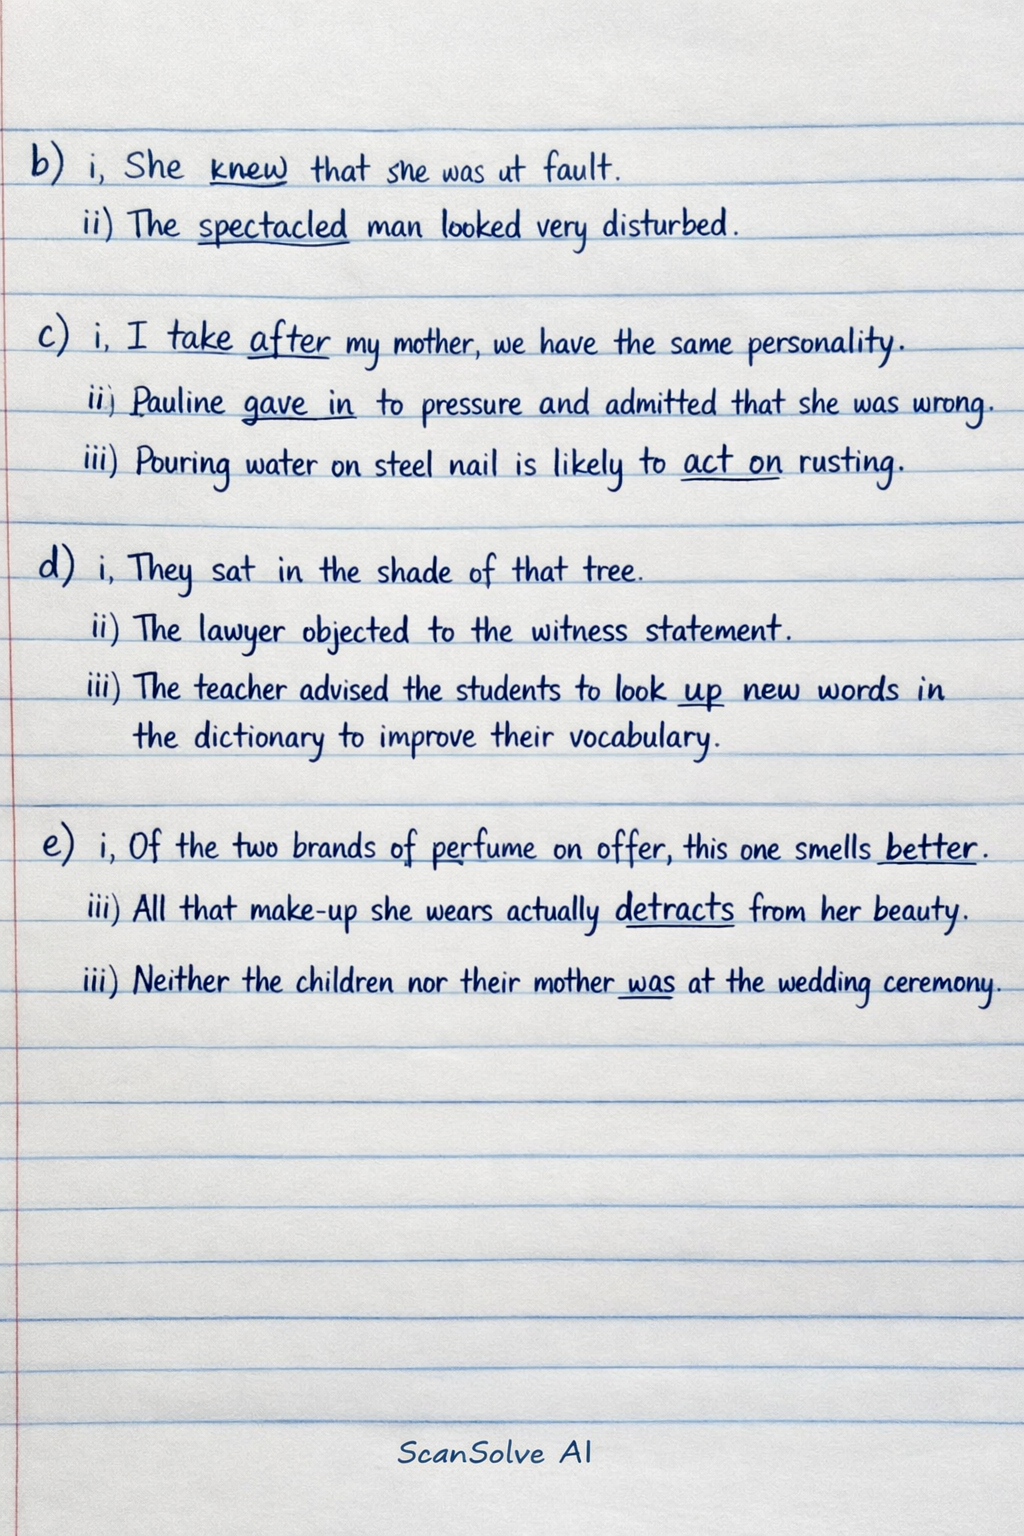 b) i, She knew that she was ut fault.
ii) The spectacled man looked very disturbed.
c) i, I take after my mother, we have the same personality.
ii) Pauline gave in to pressure and admitted that she was wrong.
iii) Pouring water on steel nail is likely to act on rusting.
d) i, They sat in the shade of that tree.
ii) The lawyer objected to the witness statement.
iii) The teacher advised the students to look up new words in
the dictionary to improve their vocabulary.
e) i, Of the two brands of perfume on offer, this one smells better.
iii) All that make-up she wears actually detracts from her beauty.
iii) Neither the children nor their mother was at the wedding ceremony.
ScanSolve AI